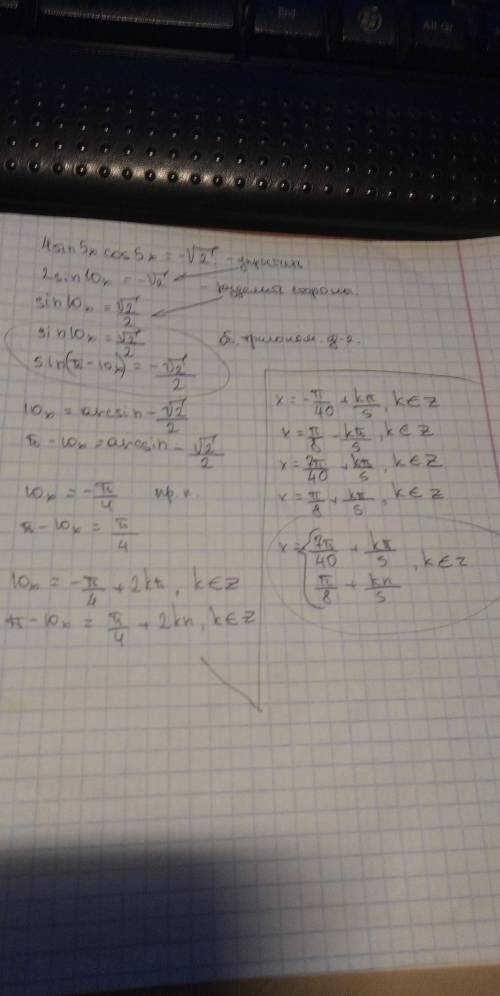 End
Alt Gr
4sin5x cos5x = -√2 - упростить
2sin10x = -√2
- разделим стороны.
sin10x = √2/2
sin10x = √2/2
sin(π-10x) = -√2/2
10x = arcsin -√2/2
π-10x = arcsin -√2/2
10x = -π/4
π-10x = π/4
10x = -π/4 + 2kπ, k∈Z
π-10x = π/4 + 2kπ, k∈Z
x = -π/40 + kπ/5, k∈Z
x = π/8 - kπ/5, k∈Z
x = 7π/40 + kπ/5, k∈Z
x = π/8 + kπ/5, k∈Z
x = { 7π/40 + kπ/5
π/8 + kπ/5 , k∈Z